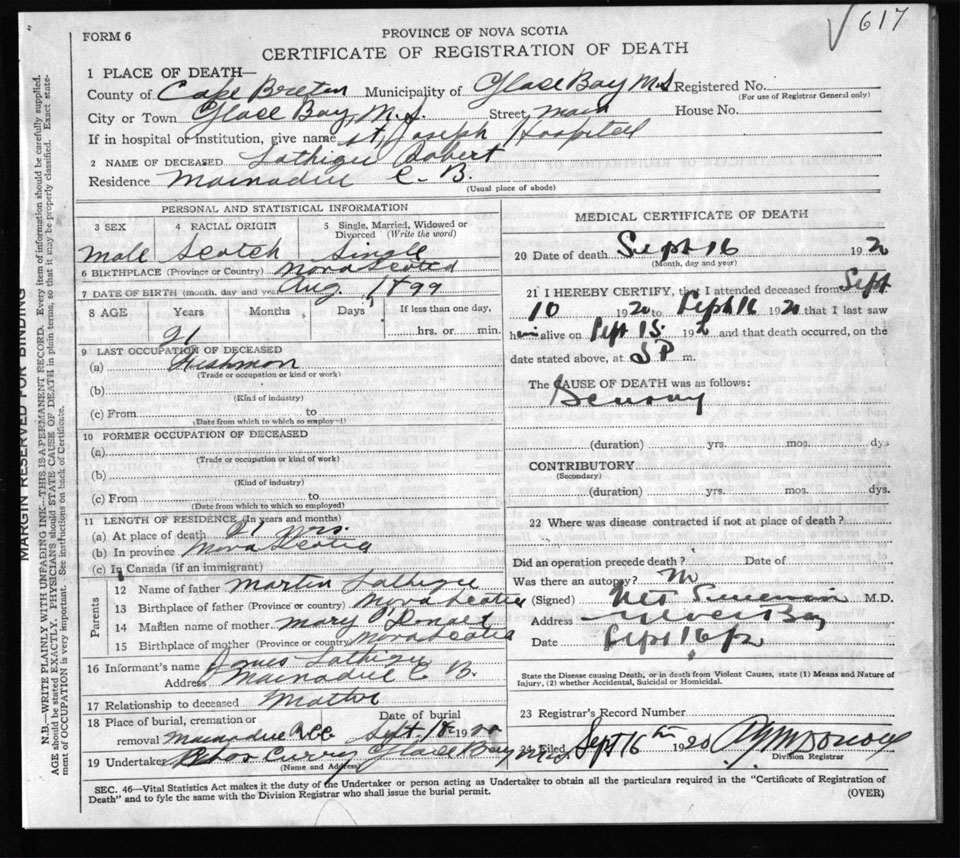 √617
FORM 6
PROVINCE OF NOVA SCOTIA
CERTIFICATE OF REGISTRATION OF DEATH
1 PLACE OF DEATH—
County of Cape Breton Municipality of Glace Bay N.S Registered No.
(For use of Registrar General only)
City or Town Glace Bay, N.S. Street, main House No.
If in hospital or institution, give name st Joseph Hospital
2 NAME OF DECEASED Lathigee Robert
Residence Mainadieu C. B.
(Usual place of abode)
PERSONAL AND STATISTICAL INFORMATION
3 SEX 4 RACIAL ORIGIN 5 Single, Married, Widowed or Divorced (Write the word)
Male Scotch Single
6 BIRTHPLACE (Province or Country) Nova Scotia
7 DATE OF BIRTH (month, day and year) Aug. 1899
8 AGE Years Months Days If less than one day,
21 hrs. or min.
9 LAST OCCUPATION OF DECEASED
(a) Fishman
(Trade or occupation or kind or work)
(b)
(Kind of industry)
(c) From to
(Date from which to which so employed)
10 FORMER OCCUPATION OF DECEASED
(a)
(Trade or occupation or kind of work)
(b)
(Kind of industry)
(c) From to
(Date from which to which so employed)
11 LENGTH OF RESIDENCE (In years and months)
(a) At place of death 21 yrs.
(b) In province Nova Scotia
(c) In Canada (if an immigrant)
Parents
12 Name of father Martin Lathigee
13 Birthplace of father (Province or country) Nova Scotia
14 Maiden name of mother Mary
15 Birthplace of mother (Province or country) Nova Scotia
16 Informant's name Lathigee
Address Mainadieu C B.
17 Relationship to deceased
18 Place of burial, cremation or Date of burial
removal Mainadieu Sept. 18 1920
19 Undertaker Curry Glace Bay N.S
(Name and Address)
MEDICAL CERTIFICATE OF DEATH
20 Date of death Sept 16 1920
(Month, day and year)
21 I HEREBY CERTIFY, that I attended deceased from Sept
10 1920 to Sept 16 1920 that I last saw
him alive on Sept 15. 192 and that death occurred, on the
date stated above, at 5 P m.
The CAUSE OF DEATH was as follows:
(duration) yrs. mos. dys
CONTRIBUTORY
(Secondary)
(duration) yrs. mos. dys.
22 Where was disease contracted if not at place of death?
Did an operation precede death? Date of
Was there an autopsy? No
(Signed) M.D.
Address Bay
Date Sept 16/
State the Disease causing Death, or in death from Violent Causes, state (1) Means and Nature of
Injury, (2) whether Accidental, Suicidal or Homicidal.
23 Registrar's Record Number
24 Filed Sept 16th 1920
Division Registrar
SEC. 46—Vital Statistics Act makes it the duty of the Undertaker or person acting as Undertaker to obtain all the particulars required in the "Certificate of Registration of
Death" and to fyle the same with the Division Registrar who shall issue the burial permit. (OVER)
MARGIN RESERVED FOR BINDING
N.B.—WRITE PLAINLY WITH UNFADING INK—THIS IS A PERMANENT RECORD. Every item of information should be carefully supplied.
AGE should be stated EXACTLY. PHYSICIANS should STATE CAUSE OF DEATH in plain terms, so that it may be properly classified. Exact state-
ment of OCCUPATION is very important. See instructions on back of Certificate.